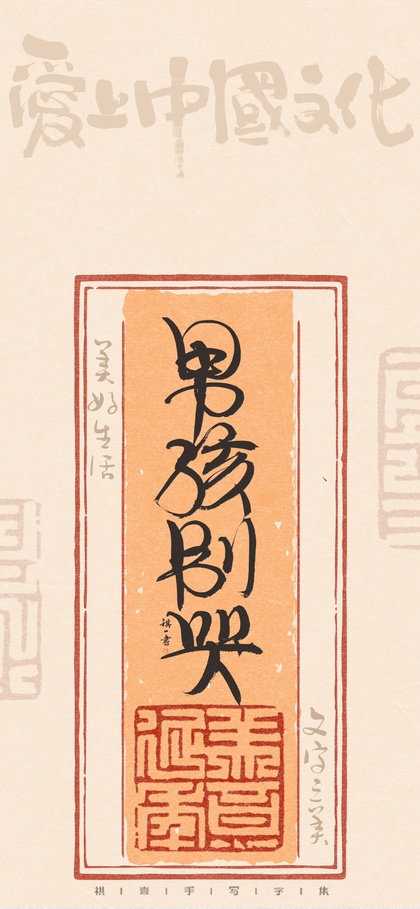 愛上中國文化
美好生活
男孩别哭
棋一書
文字之美
祺 | 喜 | 手 | 写 | 字 | 集